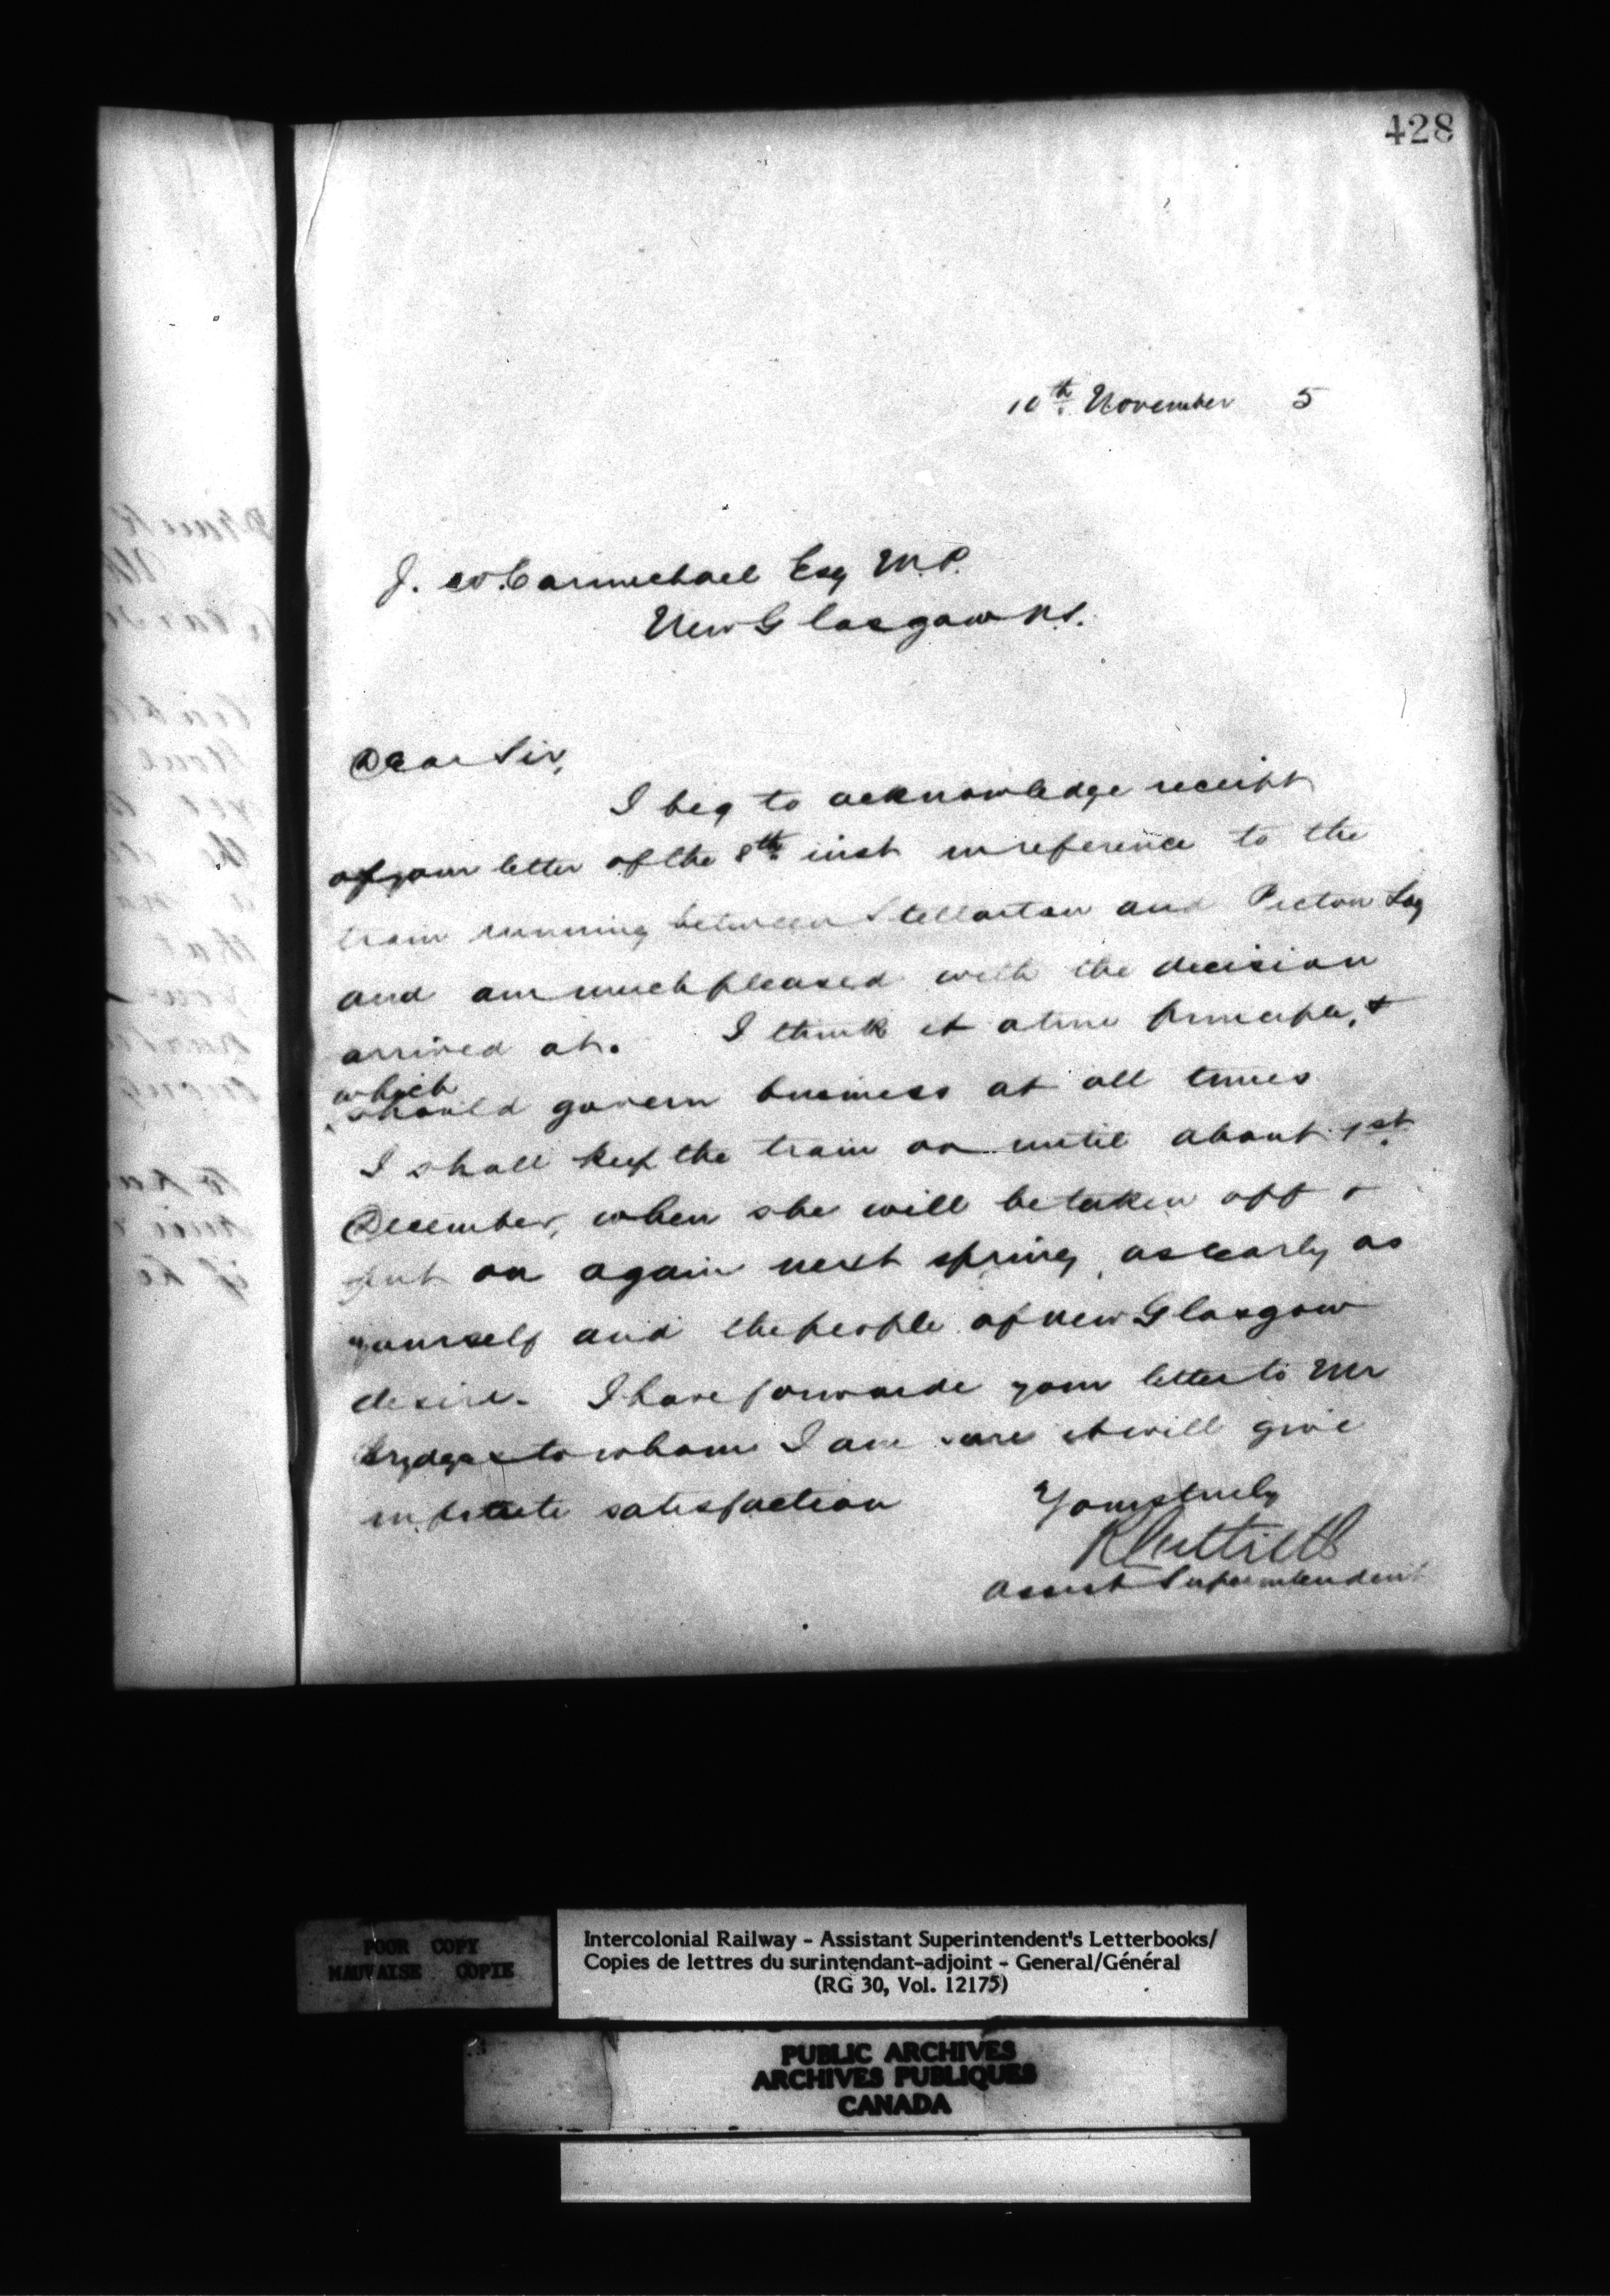 428
10th November 5
J. W. Carmichael Esq M.P.
New Glasgow N.S.
Dear Sir,
I beg to acknowledge receipt
of your letter of the 8th inst in reference to the
train running between Stellarton and Pictou Ldg
and am much pleased with the decision
arrived at. I think it a true &
which
should govern business at all times
I shall keep the train on until about 1st
December, when she will be taken off &
put on again next spring, as early as
yourself and the people of New Glasgow
desire. I have forwarde your letter to Mr
Brydges to whom I am sure it will give
satisfaction
Yours truly
Assist Superintendent
POOR COPY
MAUVAISE COPIE
Intercolonial Railway - Assistant Superintendent's Letterbooks/
Copies de lettres du surintendant-adjoint - General/Général
(RG 30, Vol. 12175)
PUBLIC ARCHIVES
ARCHIVES PUBLIQUES
CANADA